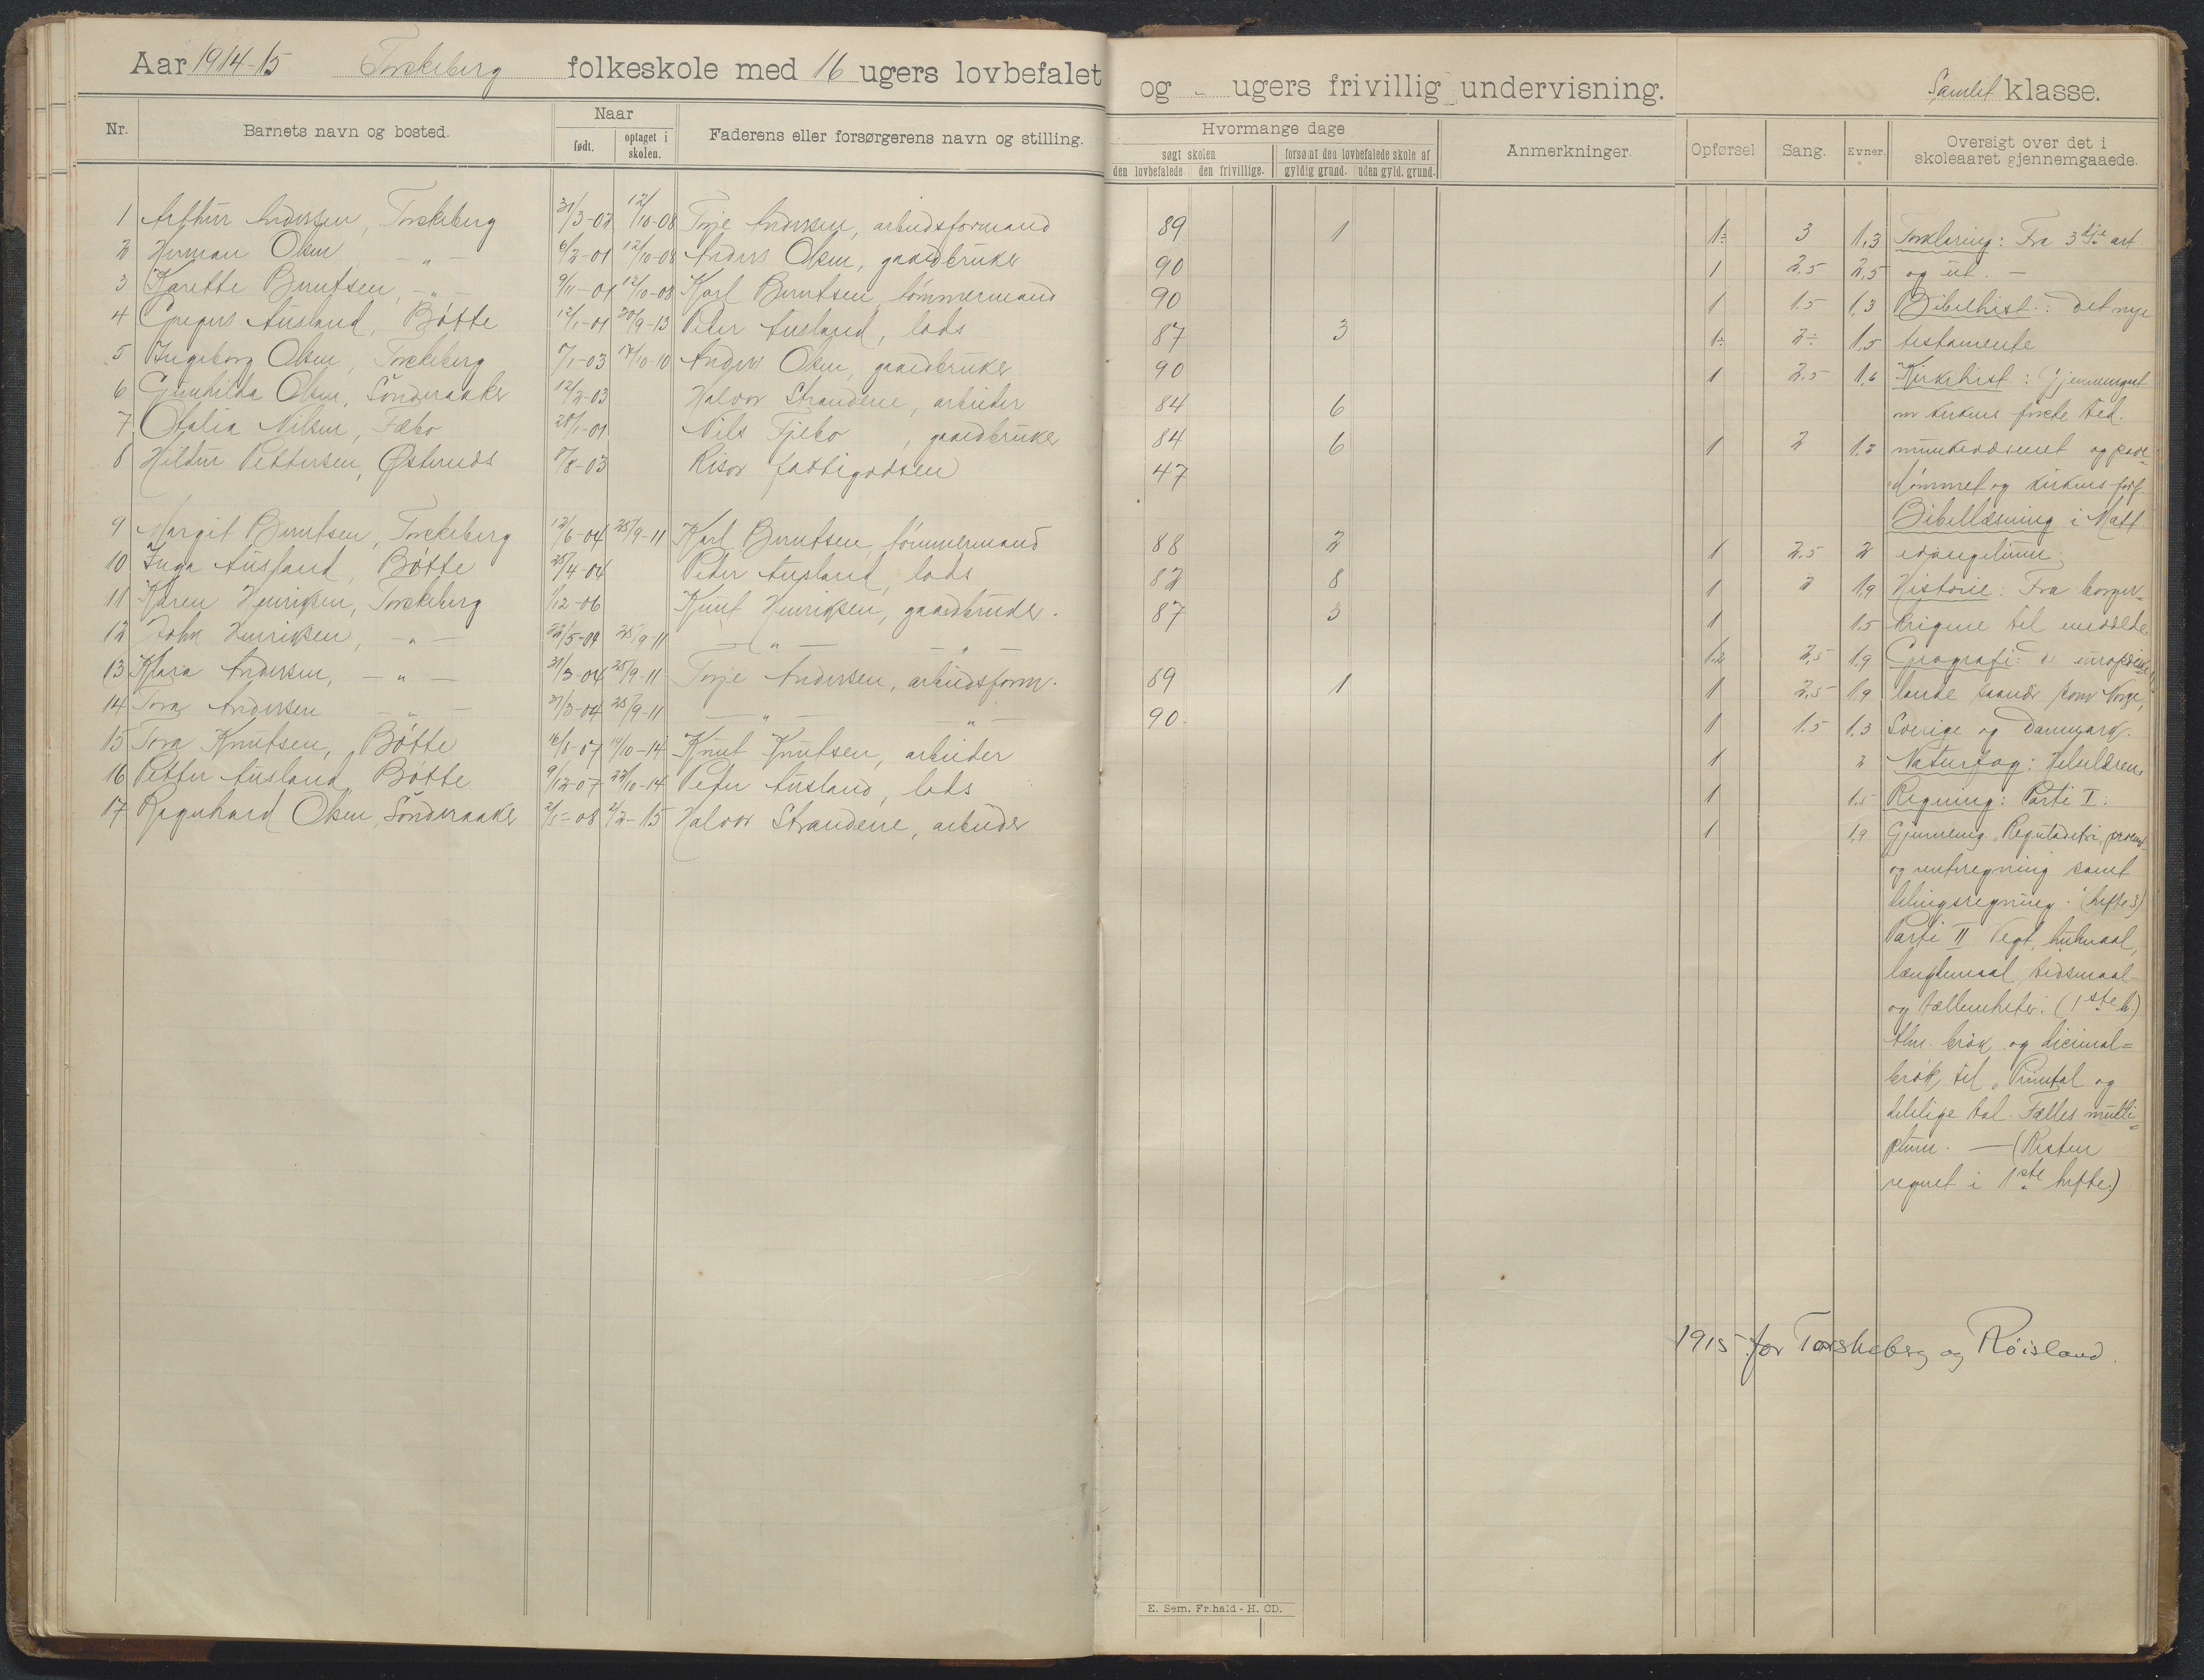 Aar 1914-15 Torskeberg folkeskole med 16 ugers lovbefalet og - ugers frivillig undervisning. Samlet klasse.
Nr. Barnets navn og bosted. Naar født. optaget i skolen. Faderens eller forsørgerens navn og stilling.
Hvormange dage
søgt skolen
den lovbefalede den frivillige.
forsømt den lovbefalede skole af
gyldig grund. uden gyld. grund.
Anmerkninger.
Opførsel Sang. Evner. Oversigt over det i skoleaaret gjennemgaaede.
1 Arthur Andersen, Torskeberg 31/3-02 12/10-08 Torje Andersen, arbeidsformand 89 1
2 Herman Olsen — " — 6/2-01 12/10-08 Anders Olsen, gaardbruker 90
3 Karette Berntsen, — " — 9/11-01 12/10-08 Karl Berntsen, tømmermand 90
4 Gregers Ausland, Bøtte 12/1-01 20/9-13 Peder Ausland, lods 87 3
5 Ingeborg Olsen, Torskeberg 7/1-03 17/10-10 Anders Olsen, gaardbruker 90
6 Gunhilda Olsen, Sönderaaker 12/2-03 Halvor Strandene, arbeider 84 6
7 Otalia Nilsen, Fæbo 28/1-01 Nils Fjebo, gaardbruker 84 6
8 Hildur Pettersen, Østerness 7/8-03 Risør fattigvæsen 47
9 Margit Berntsen, Torskeberg 12/6-04 25/9-11 Karl Berntsen, tømmermand 88 2
10 Inga Ausland, Bøtte 25/4-04 Peder Ausland, lods 82 8
11 Karen Henriksen, Torskeberg 1/12-06 Knut Henriksen, gaardbruder. 87 3
12 John Henriksen, — " — 22/5-04 25/9-11 — " — — " —
13 Klara Andersen, — " — 31/3-04 25/9-11 Torje Andersen, arbeidsform. 89 1
14 Tora Andersen — " — 31/3-04 25/9-11 — " — — " — 90
15 Tora Knutsen, Bøtte 16/8-07 19/10-14 Knut Knutsen, arbeider
16 Petter Ausland, Bøtte 9/12-07 22/10-14 Peder Ausland, lods
17 Ragnhard Olsen, Sönderaaker 2/1-08 2/2-15 Halvor Strandene, arbeider
1÷ 3 1,3
1 2,5 2,5
1 1.5 1,3
1÷ 2÷ 1,5
1 2.5 1,6
1 2 1.2
1 2.5 2
1 2 1,9
1 1.5
1.2 2,5 1,9
1 2,5 1,9
1 1.5 1,3
1 2
1 1.5
1 1,9
Forklaring: Fra 3dje art.
og ut. —
Bibelhist.: Det nye
testamente
Kirkehist: Gjennemgaat
om kirkens første tid.
munkevæsenet og pave=
dømmet og kirkens forf.
Bibellæsning i Matt.
evangelium.
Historie: Fra borger-
krigene til
Geografi: de europæiske
lande saanær som Norge,
Sverige og Danmark.
Naturfag: Helselæren
Regning: Parti I:
Gjennemg. Regutadetri, procent
og renteregning samt
delingsregning. (hefte 3)
Parti II Vegt, hulmaal,
længdemaal, tidsmaal
og tællenheter. (1ste h.)
Alm. brøk og decimal=
brøk, til "Primtal og
delelige tal. Fælles multi=
plum. — (Resten
regnet i 1ste hefte.)
1915 for Torskeberg og Röisland.
E. Sem. Fr.hald - H. CD.